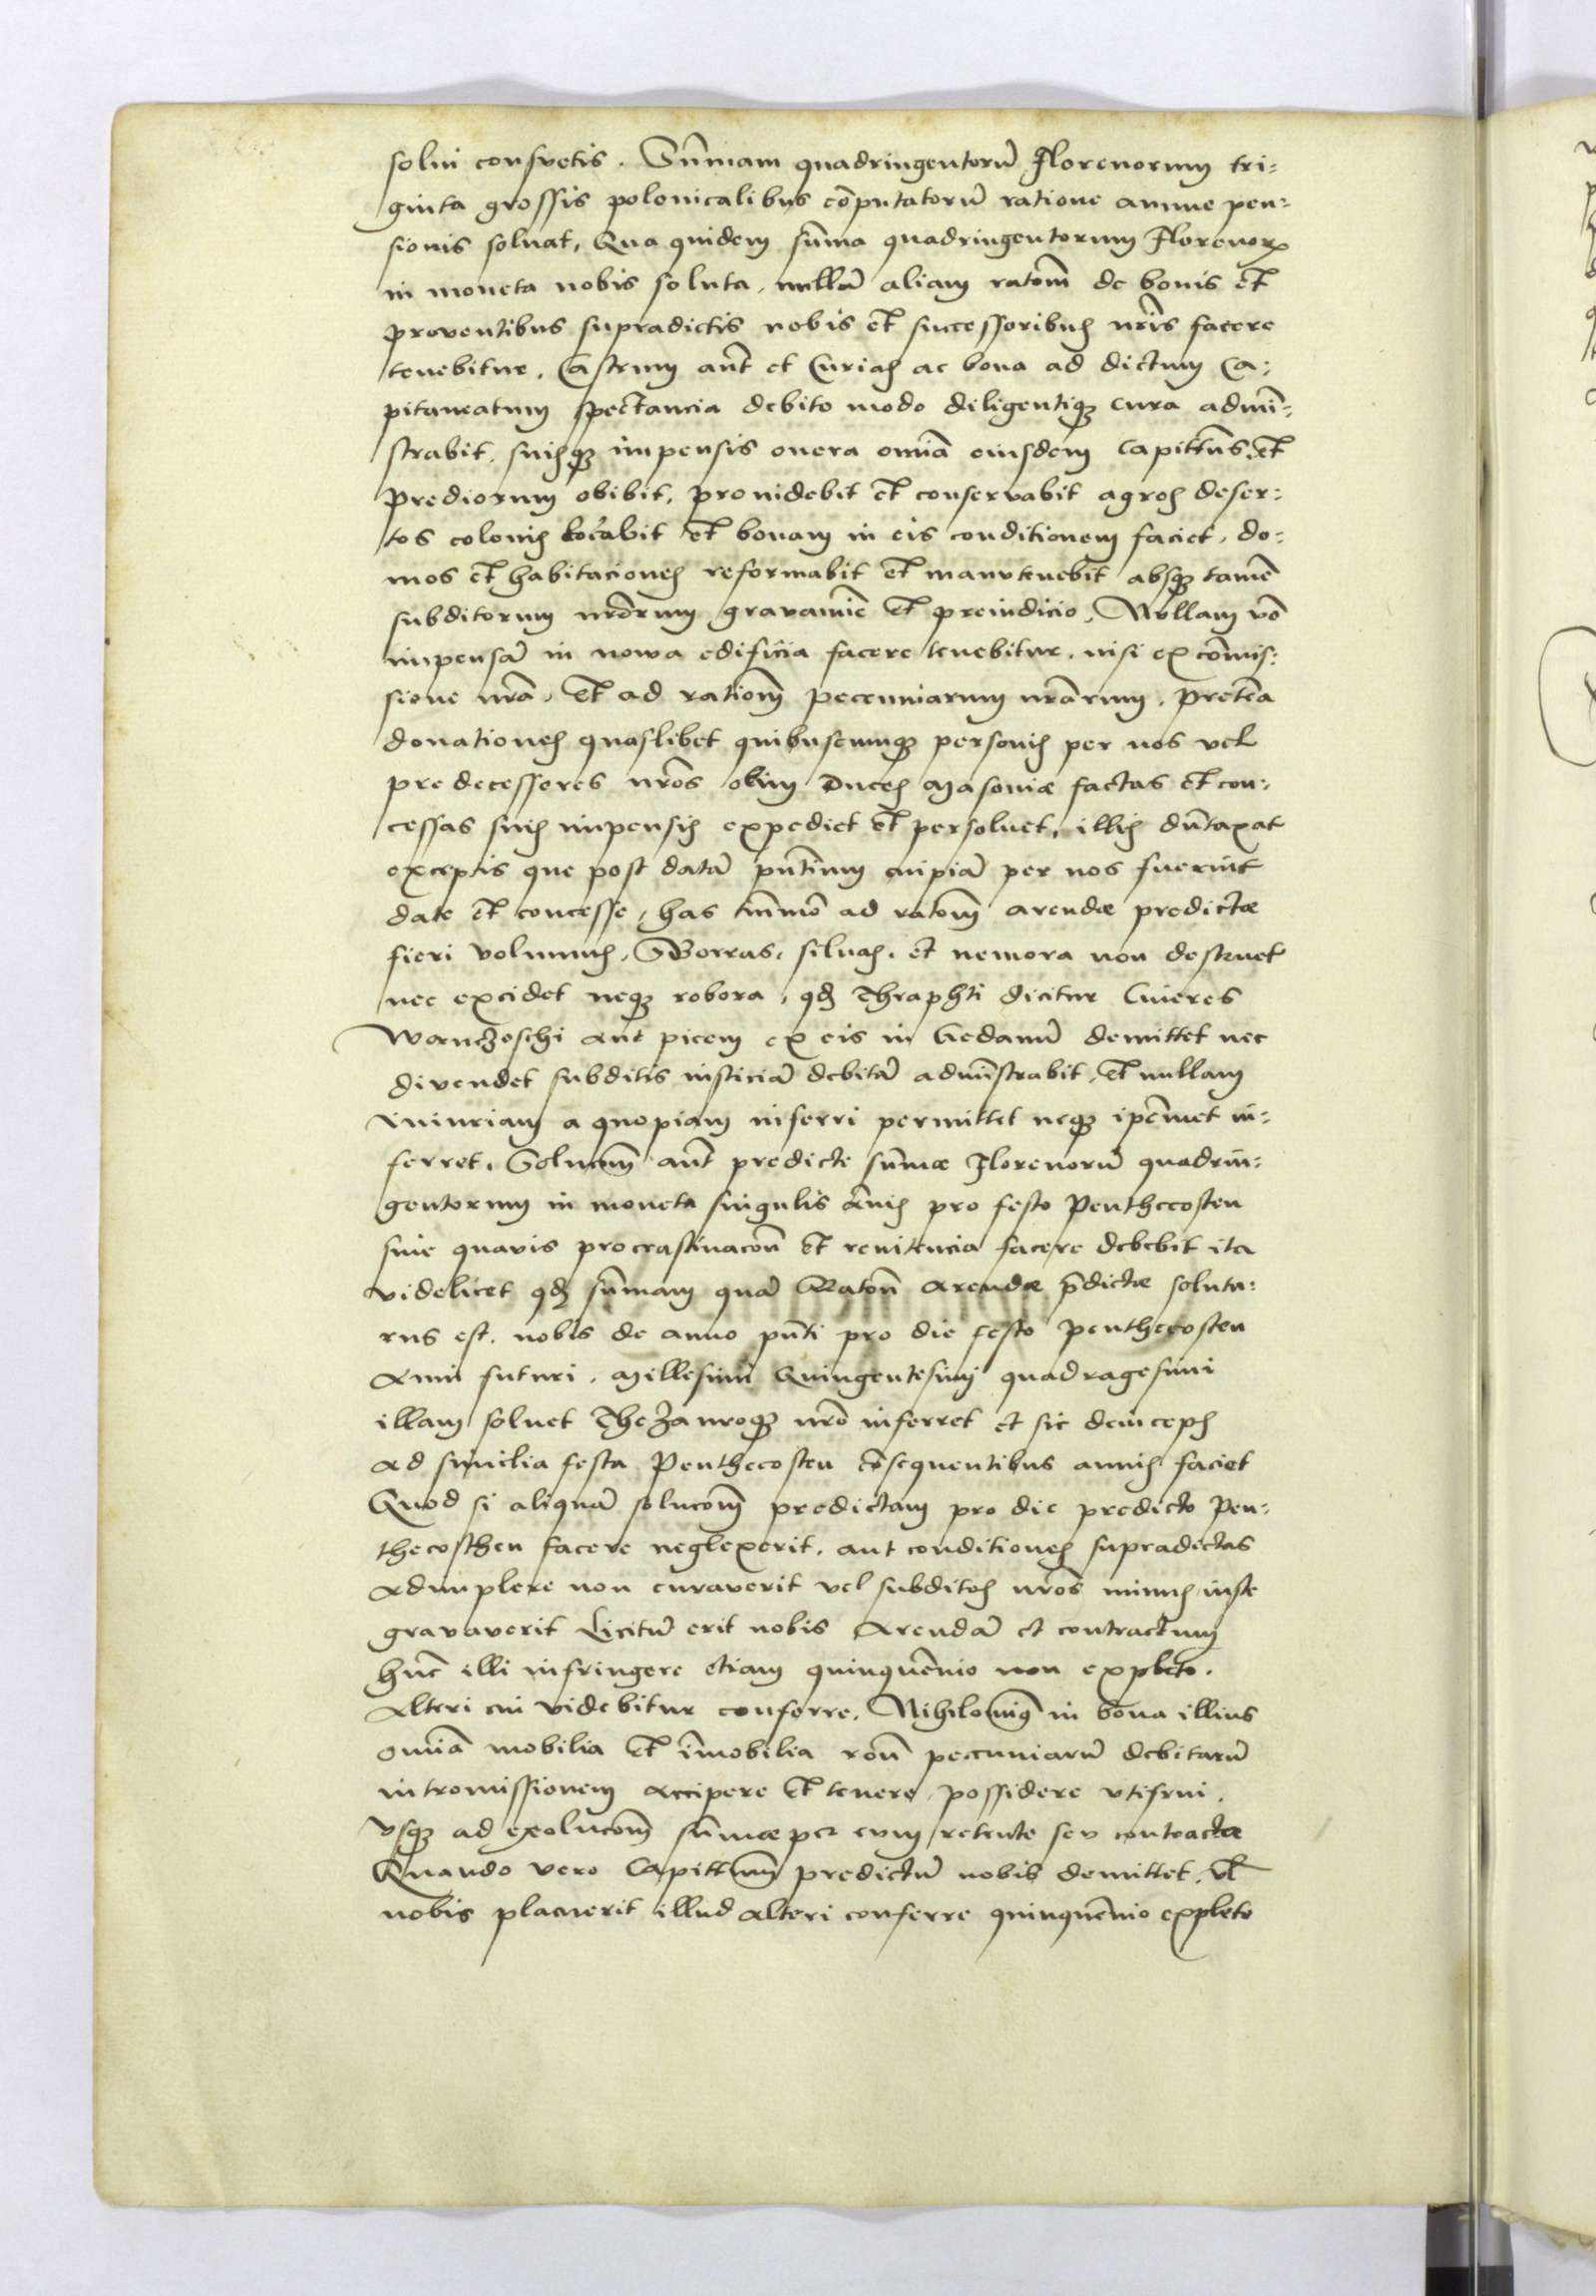 solui consvetis. Sūmam quadringentorū Florenorum tri-
ginta grossis polonicalibus cōputatorū ratione annue pen-
sionis soluat, Qua quidem sūma quadringentorum Florenorꝝ
in moneta nobis soluta, nullā aliam ratōm de bonis et
proventibus supradictis nobis et successoribus nr̄is facere
tenebitur. Castrum aūt et Curias ac bona ad dictum Ca-
pitaneatum spectancia debito modo diligentiqꝫ cura admi-
strabit, suisqꝫ impensis onera omīa eiusdem Capittūs, et
prediorum obibit, prouidebit et conservabit agros deser-
tos colonis locabit et bonam in eis conditionem faciet, do-
mos et habitaciones reformabit et manutenebit absqꝫ tamē
subditorum nr̄orum gravamīe et preiudicio, Nullam vō
impensā in nowa edificia facere tenebitur, nisi ex cōmis-
sione nr̄a, et ad rationē peccuniarum nr̄arum, pretēa
donationes quaslibet quibuscumqꝫ personis per nos vel
predecessores nr̄os olim Duces Masoviæ factas et con-
cessas suis impensis expediet et persoluet, illis dūtaxat
exceptis que post datā pn̄tium cuipiā per nos fuerint
date et concesse, has tn̄mō ad ratōm arendæ predictæ
fieri volumus, Borras, siluas, et nemora non destruet
nec excidet neqꝫ robora, qđ Thraphti dicitur Cineres
Wanczoschi aut picem ex eis in Gedanū demittet nec
divendet subditis iusticiā debitā admīstrabit, et nullam
iniuriam a quopiam inferri permittet neqꝫ ipēmet in-
ferret, Solucōm aūt predicte sūmæ Florenorū quadrin-
gentorum in moneta singulis ānis pro festo Penthecosten
sine quavis procrastinacōn et renitencia facere debebit ita
videlicet qđ sūmam quā Ratōn Arendæ p̄dictæ solutu-
rus est, nobis de anno pn̄ti pro die festo Penthecosten
Anni futuri, Millesimi Quingentesimi quadragesimi
illam soluet Thezauroqꝫ nr̄o inferret et sic deinceps
ad similia festa Penthecosten cōsequentibus annis faciet
Quod si aliquā solucōm predictam pro die predicto Pen-
thecosthen facere neglexerit, aut conditiones supradictas
adimplere non curaverit vel subditos nr̄os minus iuste
gravaverit Licitū erit nobis Arendā et contractum
hūc illi infringere etiam quinquēnio non expleto.
Alteri cui videbitur conferre. Nihilominꝰ in bona illius
omīa mobilia et īmobilia rōn peccuniarū debitarū
intromissionem accipere et tenere, possidere vtifrui,
vsqꝫ ad exolucōm sūmæ per eum retente seu contractæ
Quando vero Capittūm predictū nobis demittet, vl̄
nobis placuerit illud alteri conferre quinquēnio expleto